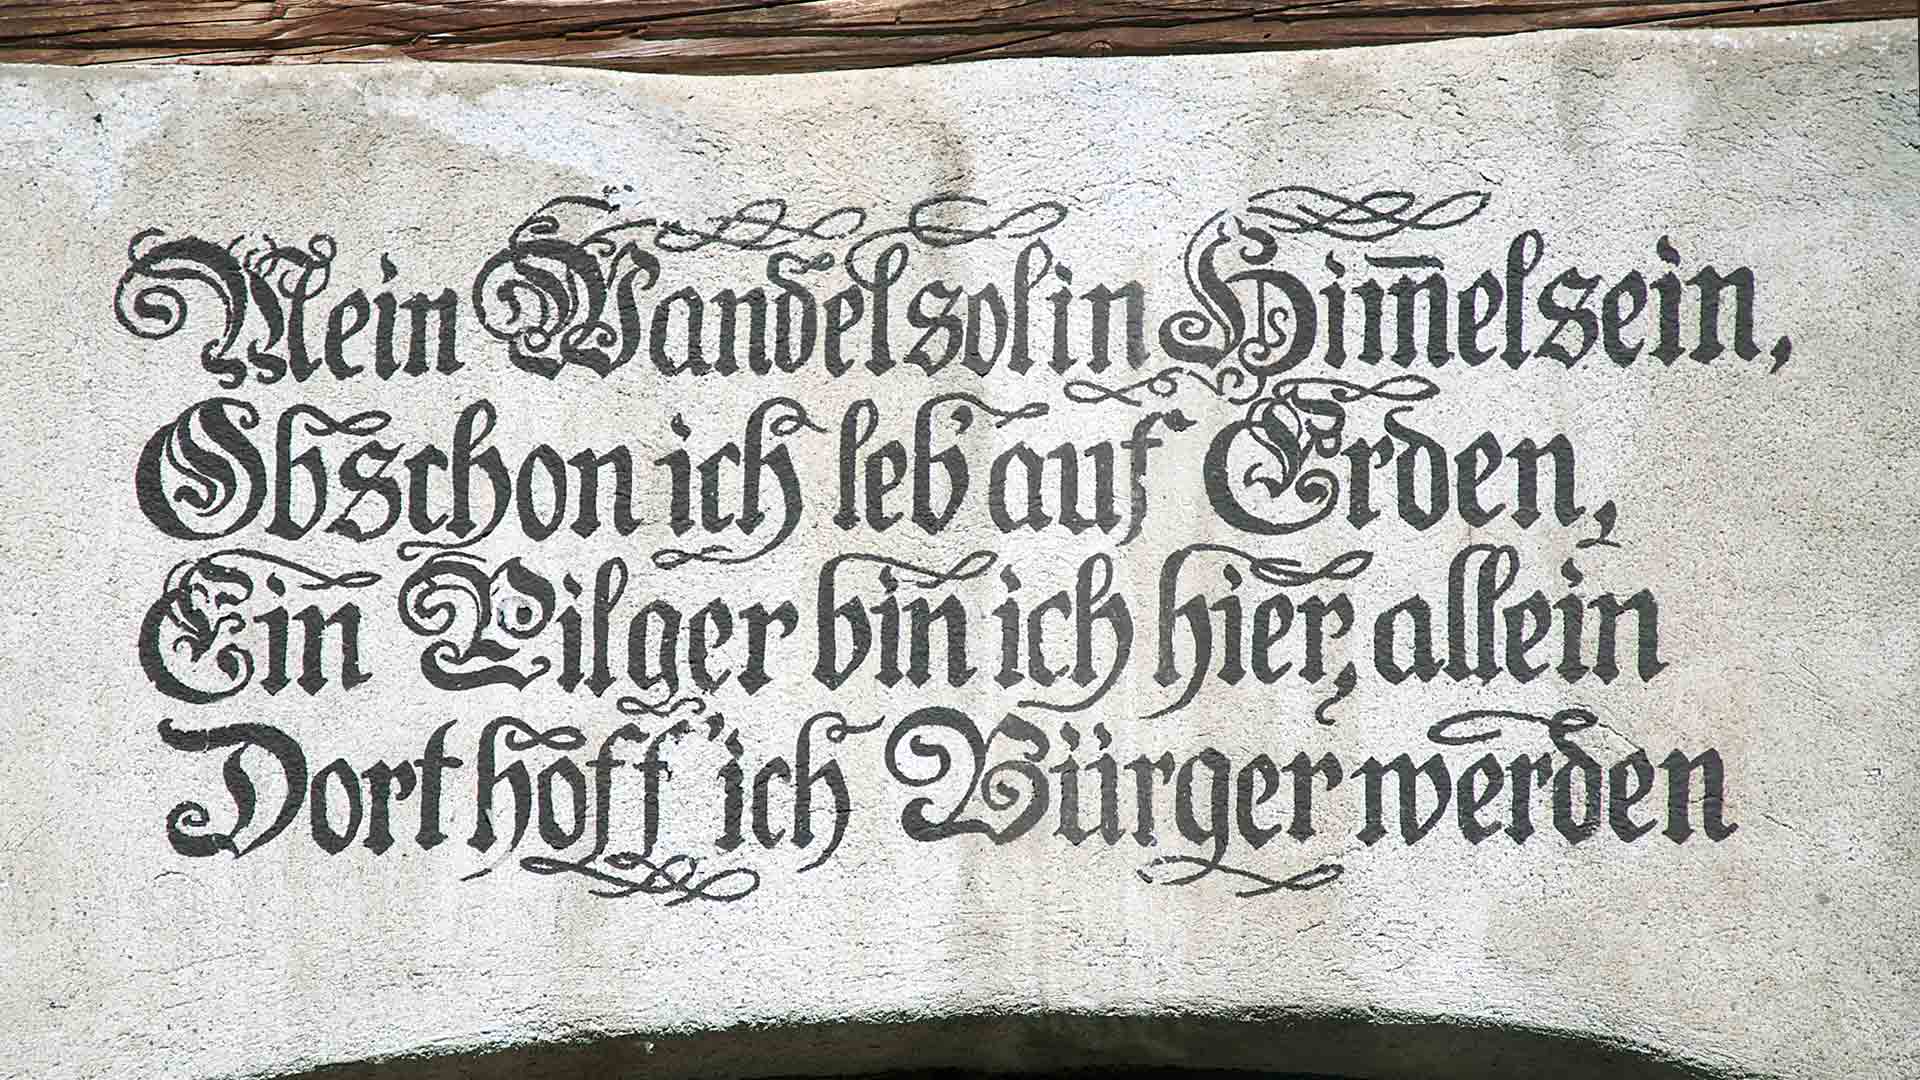 Mein Wandel sol in Him̄el sein,
Obschon ich leb' auf Erden,
Ein Pilger bin ich hier, allein
Dort hoff' ich Bürger werden